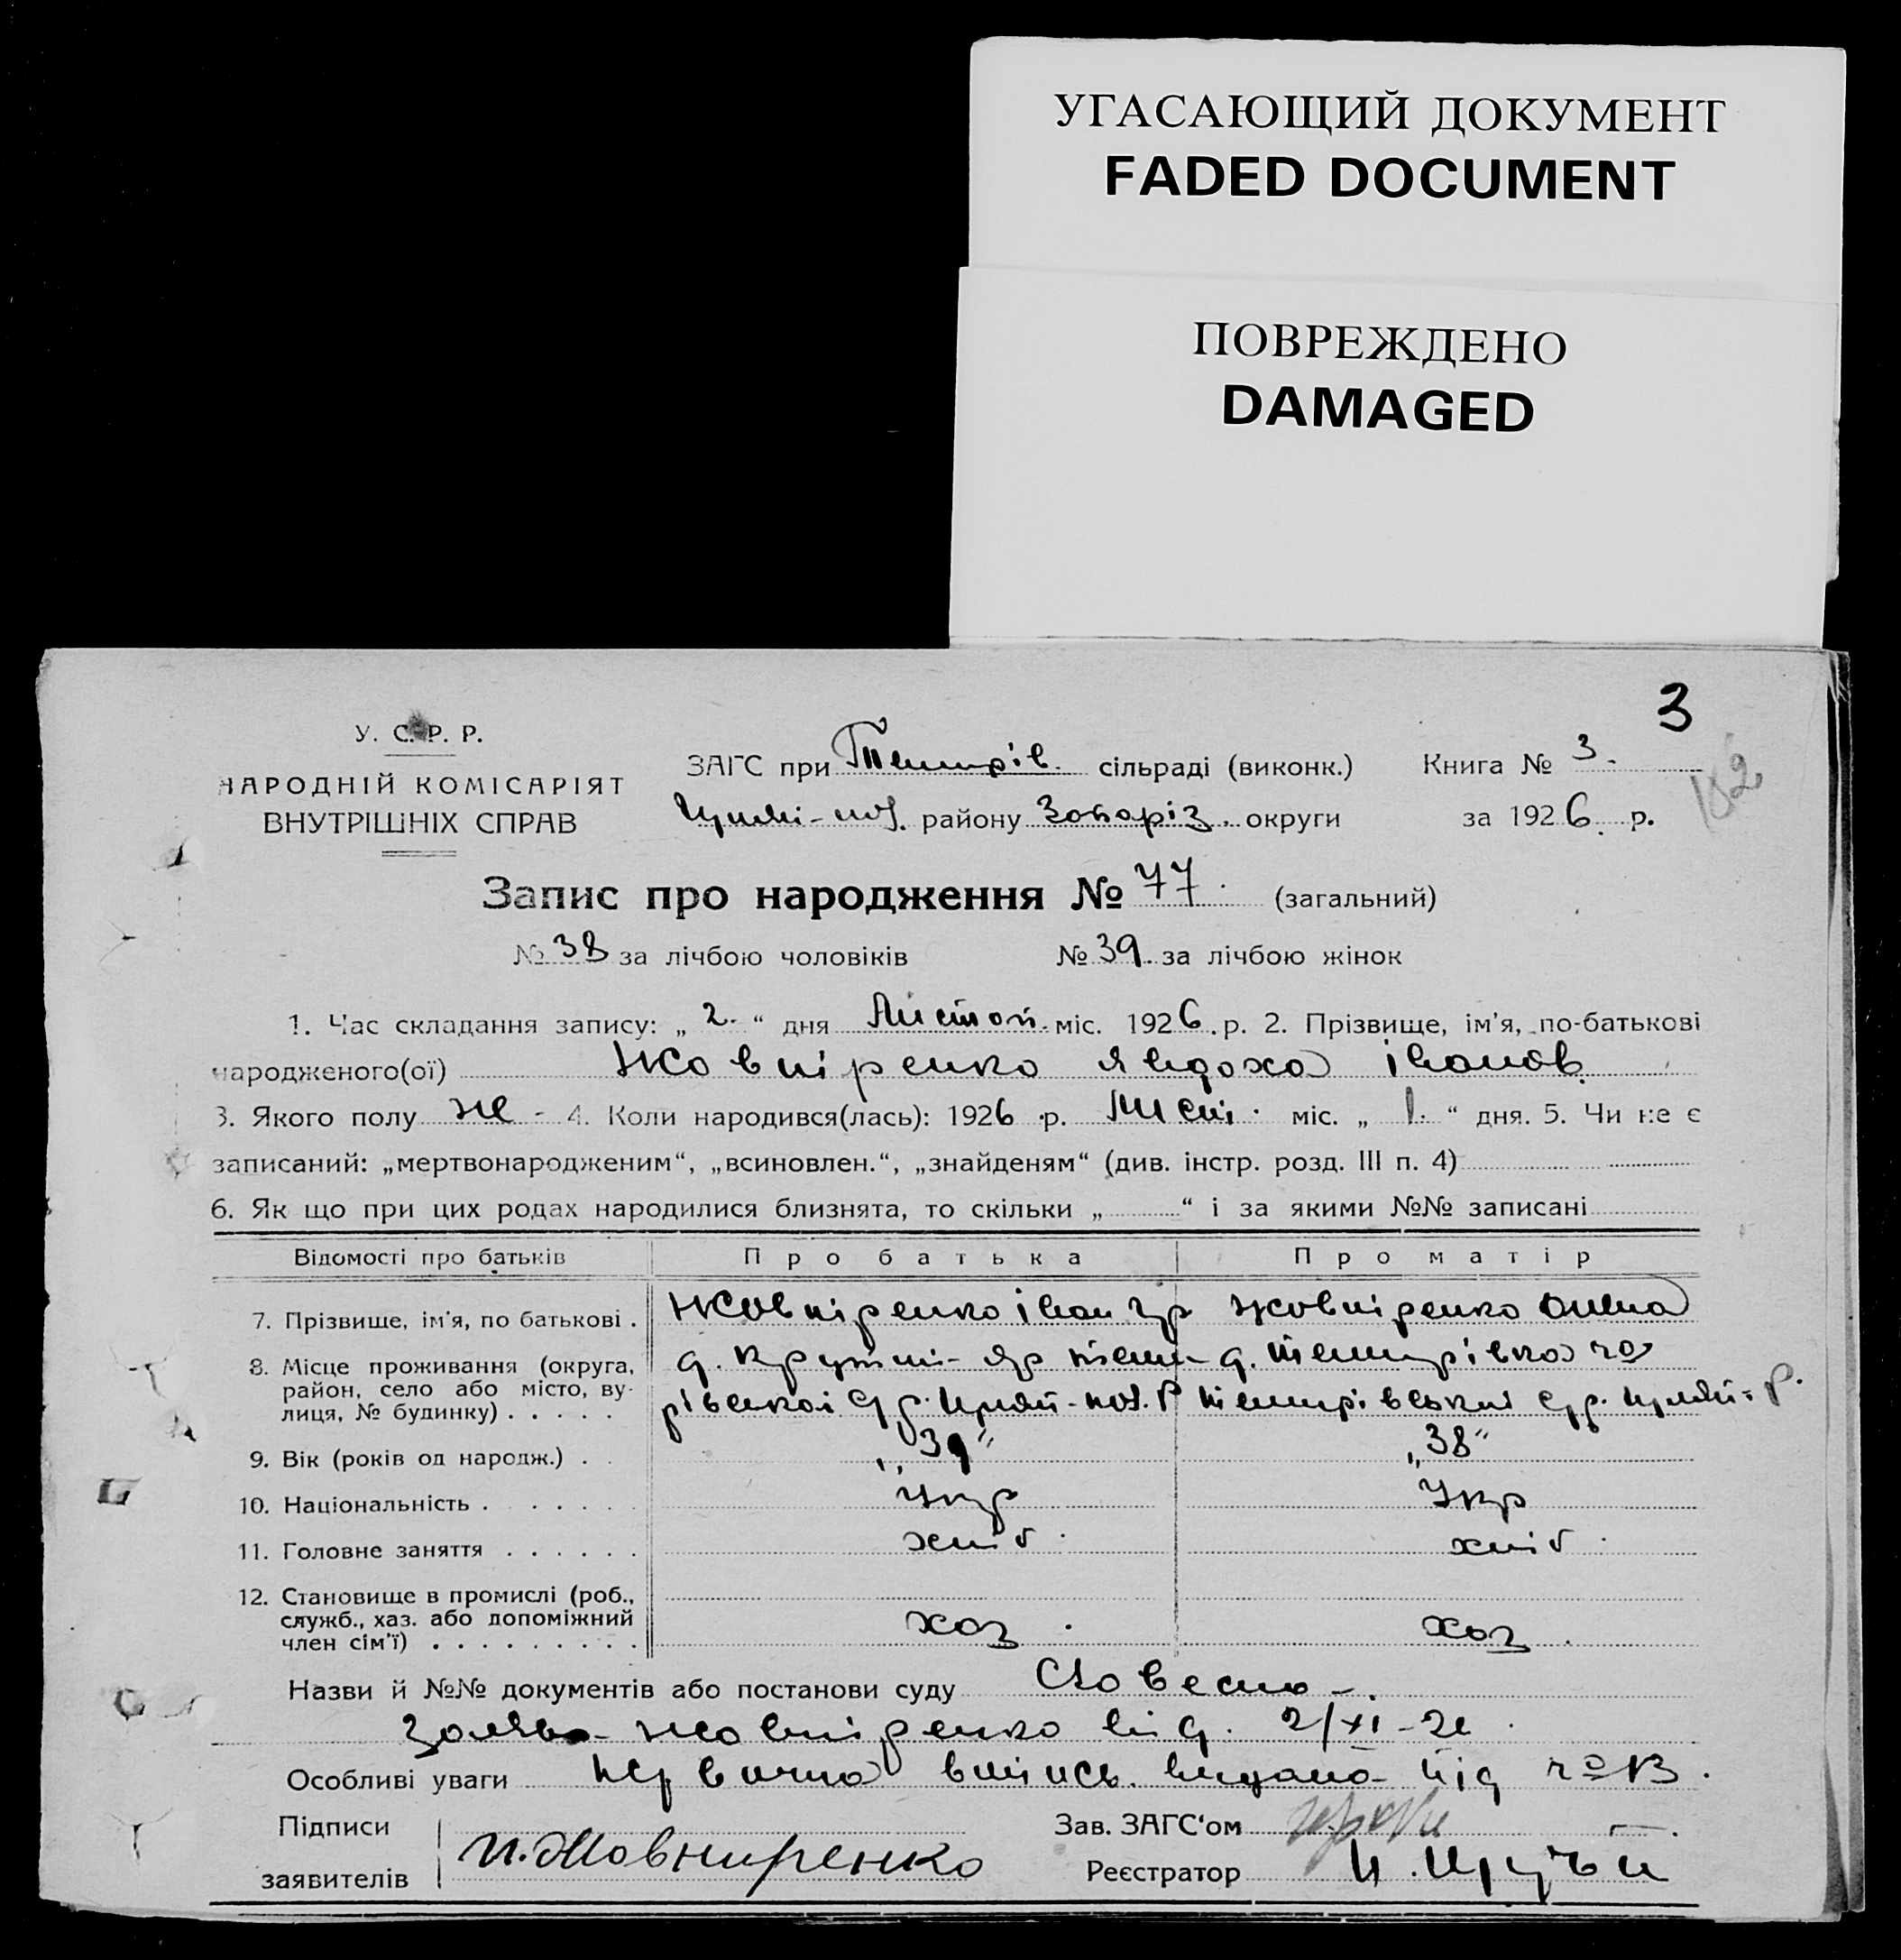 УГАСАЮЩИЙ ДОКУМЕНТ
FADED DOCUMENT
ПОВРЕЖДЕНО
DAMAGED
3
182
У. С. Р. Р.
НАРОДНІЙ КОМІСАРІЯТ
ВНУТРІШНІХ СПРАВ
ЗАГС при Темирів. сільраді (виконк.) Книга № 3.
району Запоріз. округи за 1926 р.
Запис про народження № 77. (загальний)
№ 38 за лічбою чоловіків № 39. за лічбою жінок
1. Час складання запису: „ 2. “ дня Листоп. міс. 1926. р. 2. Прізвище, ім'я, по-батькові
народженого(ої) Жовніренко Явдоха Іванов.
3. Якого полу же - 4. Коли народився(лась): 1926 р. міс. „ 1. “ дня. 5. Чи не є
записаний: „мертвонародженим“, „всиновлен.“, „знайденям“ (див. інстр. розд. III п. 4)
6. Як що при цих родах народилися близнята, то скільки „ “ і за якими №№ записані
Відомості про батьків Про батька Про матір
7. Прізвище, ім'я, по батькові . Жовніренко Іван Гр Жовніренко Олена
8. Місце проживання (округа, д. Крутий-яр Теми- д. Темирівка
район, село або місто, ву-
лиця, № будинку) . . . . . рівської с р. Темирівської с р.
9. Вік (років од народж.) . . „39“ „38“
10. Національність . . . . . . Укр Укр
11. Головне заняття . . . . . . хліб. хліб.
12. Становище в промислі (роб.,
служб., хаз. або допоміжний хоз. хоз.
член сім'ї) . . . . . . . . .
Назви й №№ документів або постанови суду Словесно -.
заява Жовніренко від. 2/XI-26.
Особливі уваги Первична випись. видана під № 13.
Підписи Зав. ЗАГС'ом
заявителів И. Жовниренко Реєстратор